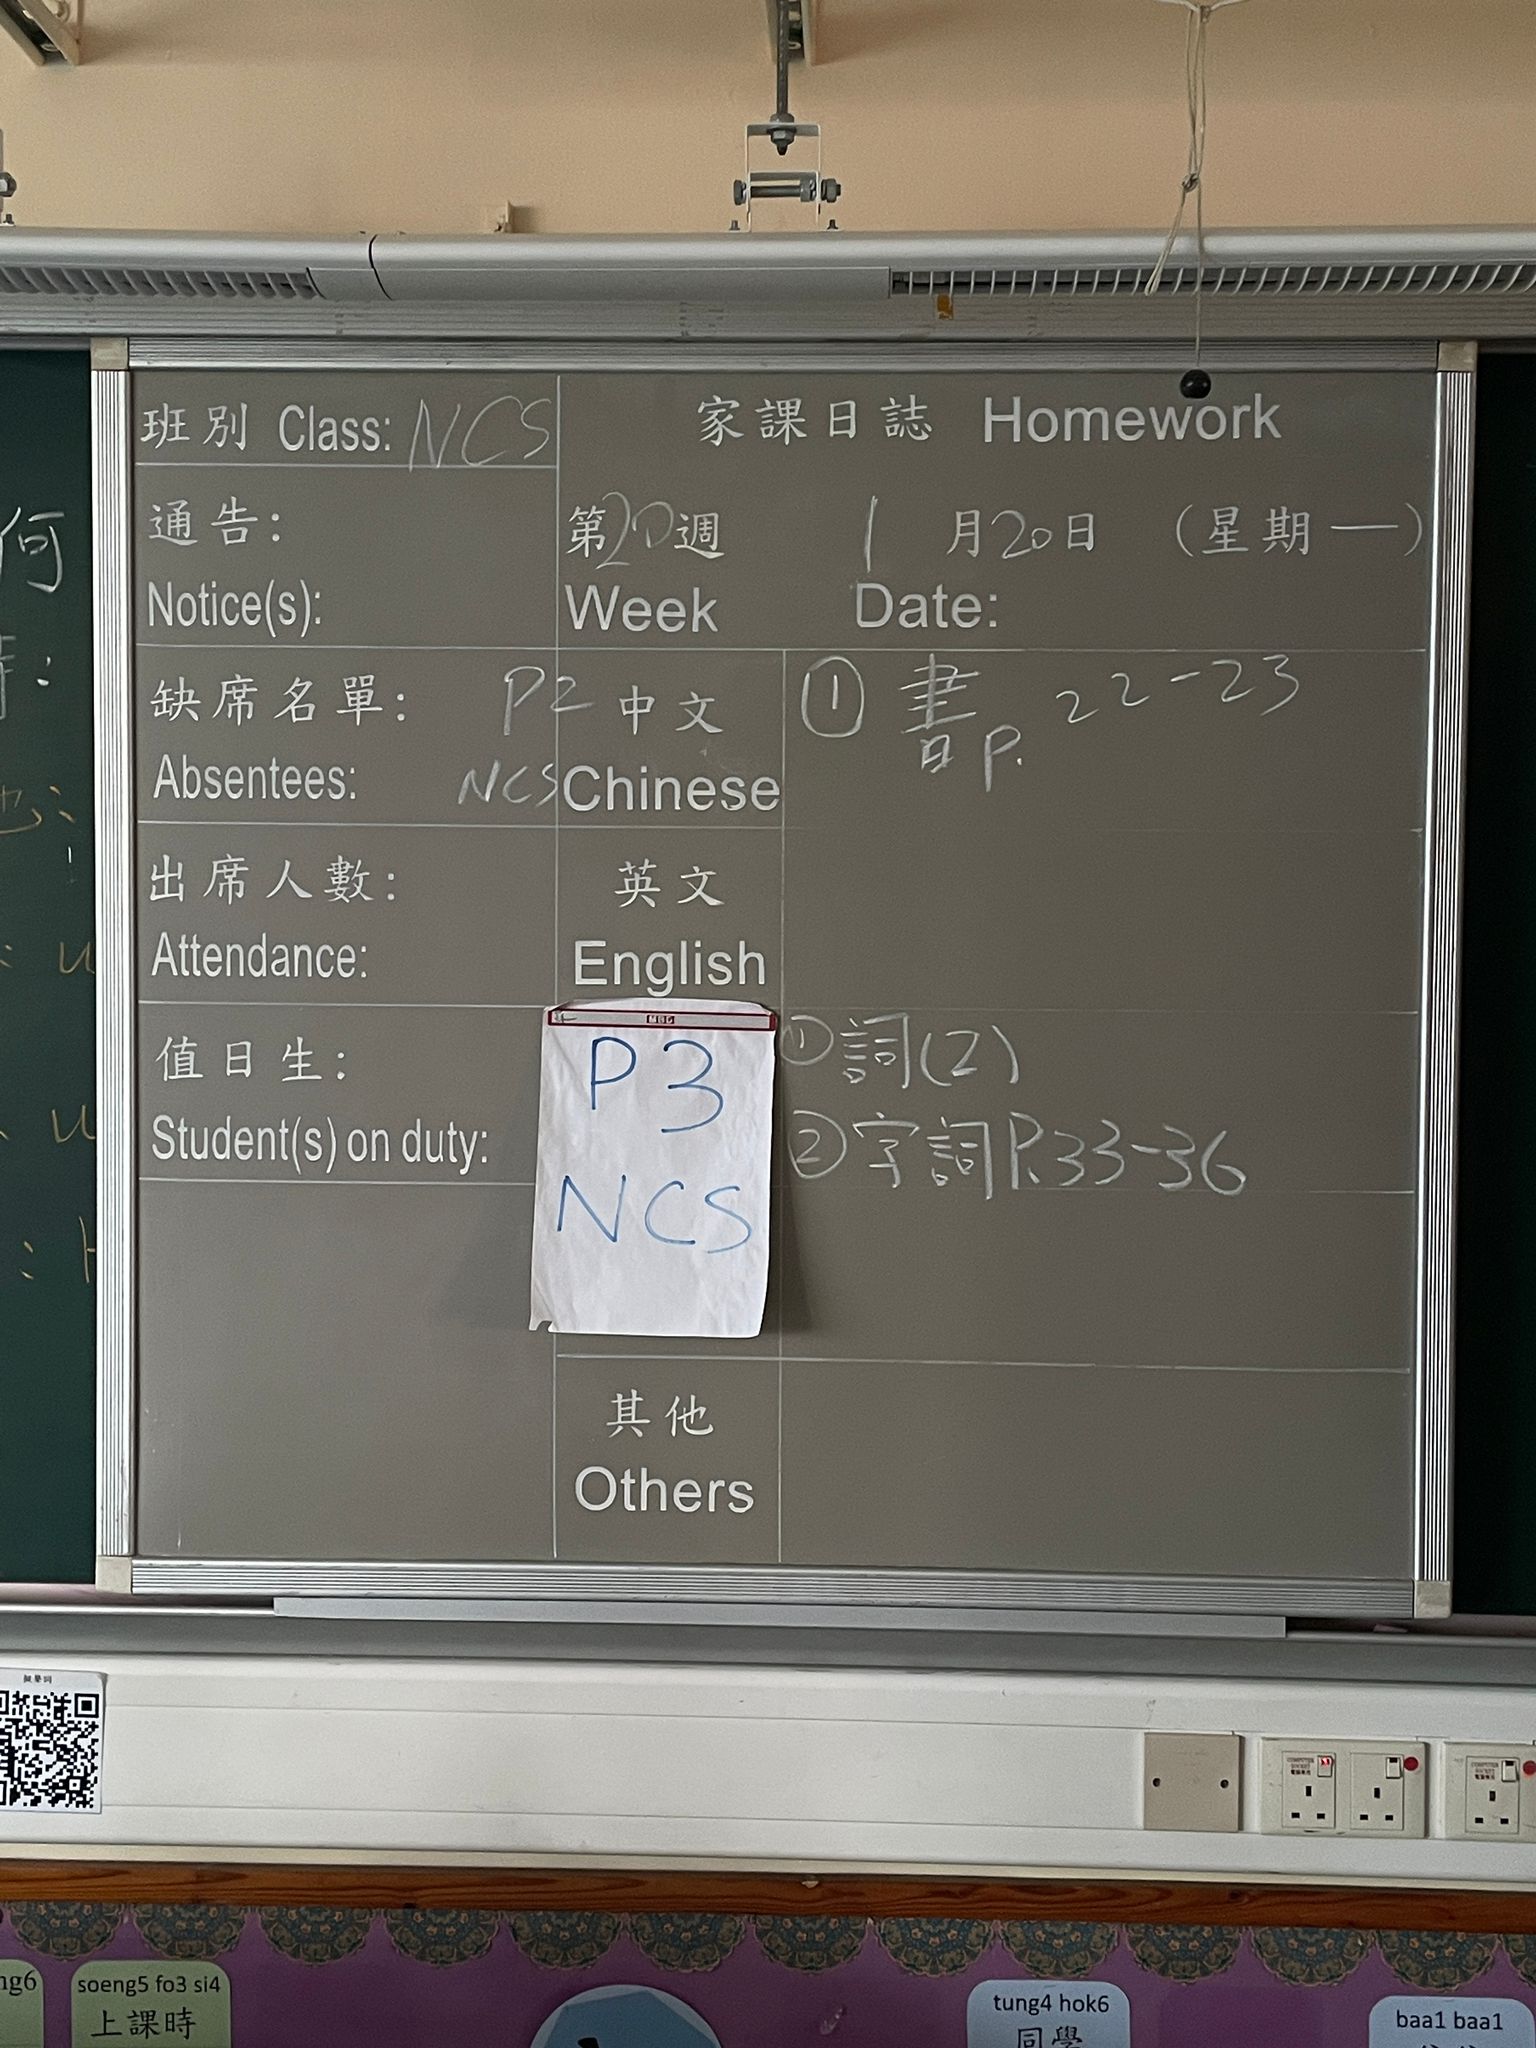 班別 Class: NCS
家課日誌 Homework
通告:
Notice(s):
第20週 1月20日 (星期一)
Week Date:
缺席名單: P2
Absentees: NCS
中文
Chinese
① 書 P. 22-23
出席人數:
Attendance:
英文
English
值日生:
Student(s) on duty:
P3
NCS
① 詞(2)
② 字詞P.33-36
其他
Others
何
: u
: H
COMPUTER SOCKET
soeng5 fo3 si4
上課時
tung4 hok6
同學
baa1 baa1